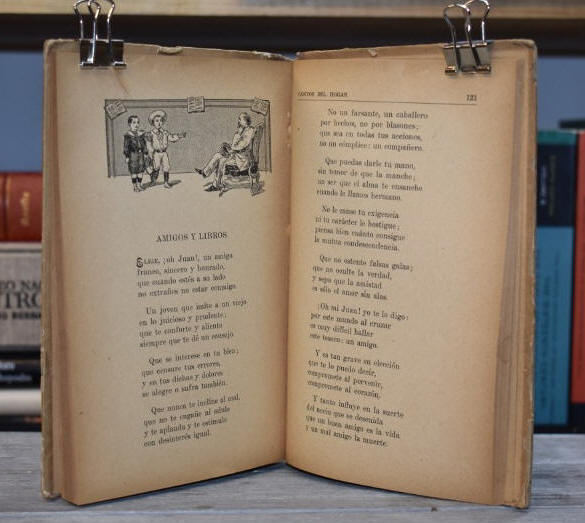 AMIGOS Y LIBROS
ELIGE, ¡oh Juan!, un amigo
franco, sincero y honrado,
que cuando estés a su lado
no extrañes no estar conmigo.
Un joven que imite a un viejo
en lo juicioso y prudente;
que te conforte y aliente
siempre que te dé un consejo.
Que se interese en tu bien;
que censure tus errores,
y en tus dichas y dolores
se alegre o sufra también.
Que nunca te incline al mal,
que no te engañe al
y te aplauda y te estimule
con desinterés igual.
CANTOS DEL HOGAR
121
No un farsante, un caballero
por hechos, no por blasones;
que sea en todas tus acciones,
no un cómplice: un compañero.
Que puedas darle tu mano,
sin temor de que la manche;
un ser que el alma te ensanche
cuando le llames hermano.
No le canse tu exigencia
ni tu carácter le hostigue;
piensa bien cuánto consigue
la mutua condescendencia.
Que no ostente falsas galas;
que no oculte la verdad,
y sepa que la amistad
es sólo el amor sin alas.
¡Oh mi Juan! yo te lo digo:
por este mundo al cruzar
es muy difícil hallar
este tesoro: un amigo.
Y es tan grave su elección
que te lo puedo decir,
compromete al porvenir,
compromete al corazón.
Y tanto influye en la suerte
del necio que se descuida
que un buen amigo es la vida
y un mal amigo la muerte.